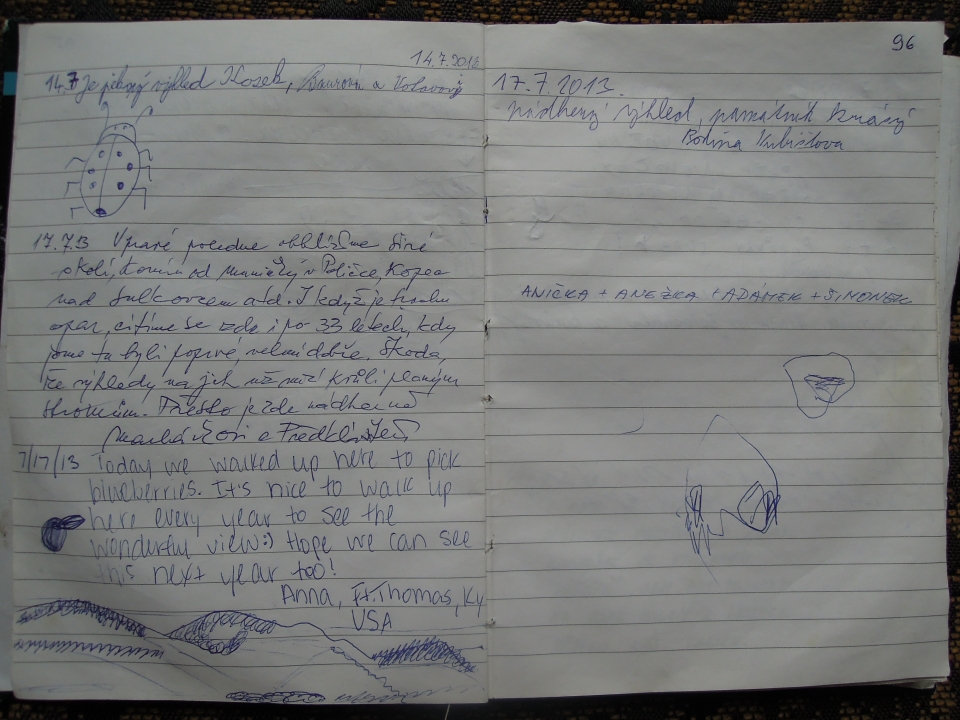 14.7.2013
14.7 Je pěkný výhled Kosek, a
17.7.13 V pravé poledne obhlížíme širé
okolí, komín od v Poličce, Kopec
nad Sulkovcem atd. I když je trochu
opar, cítíme se zde i po 33 letech, kdy
jsme tu byli poprvé, velmi dobře. Škoda,
že výhledy na jih už mizí kvůli planým
stromům. Přesto je zde nádherně
Macháčkovi a
7/17/13 Today we walked up here to pick
blueberries. It's nice to walk up
here every year to see the
wonderful view:) Hope we can see
this next year too!
Anna, Ft.Thomas, KY
USA
96
17.7.2013.
nádherný výhled, památník krásný
Kubíčkova
ANIČKA + ANEŽKA + ADÁMEK + ŠIMONEK